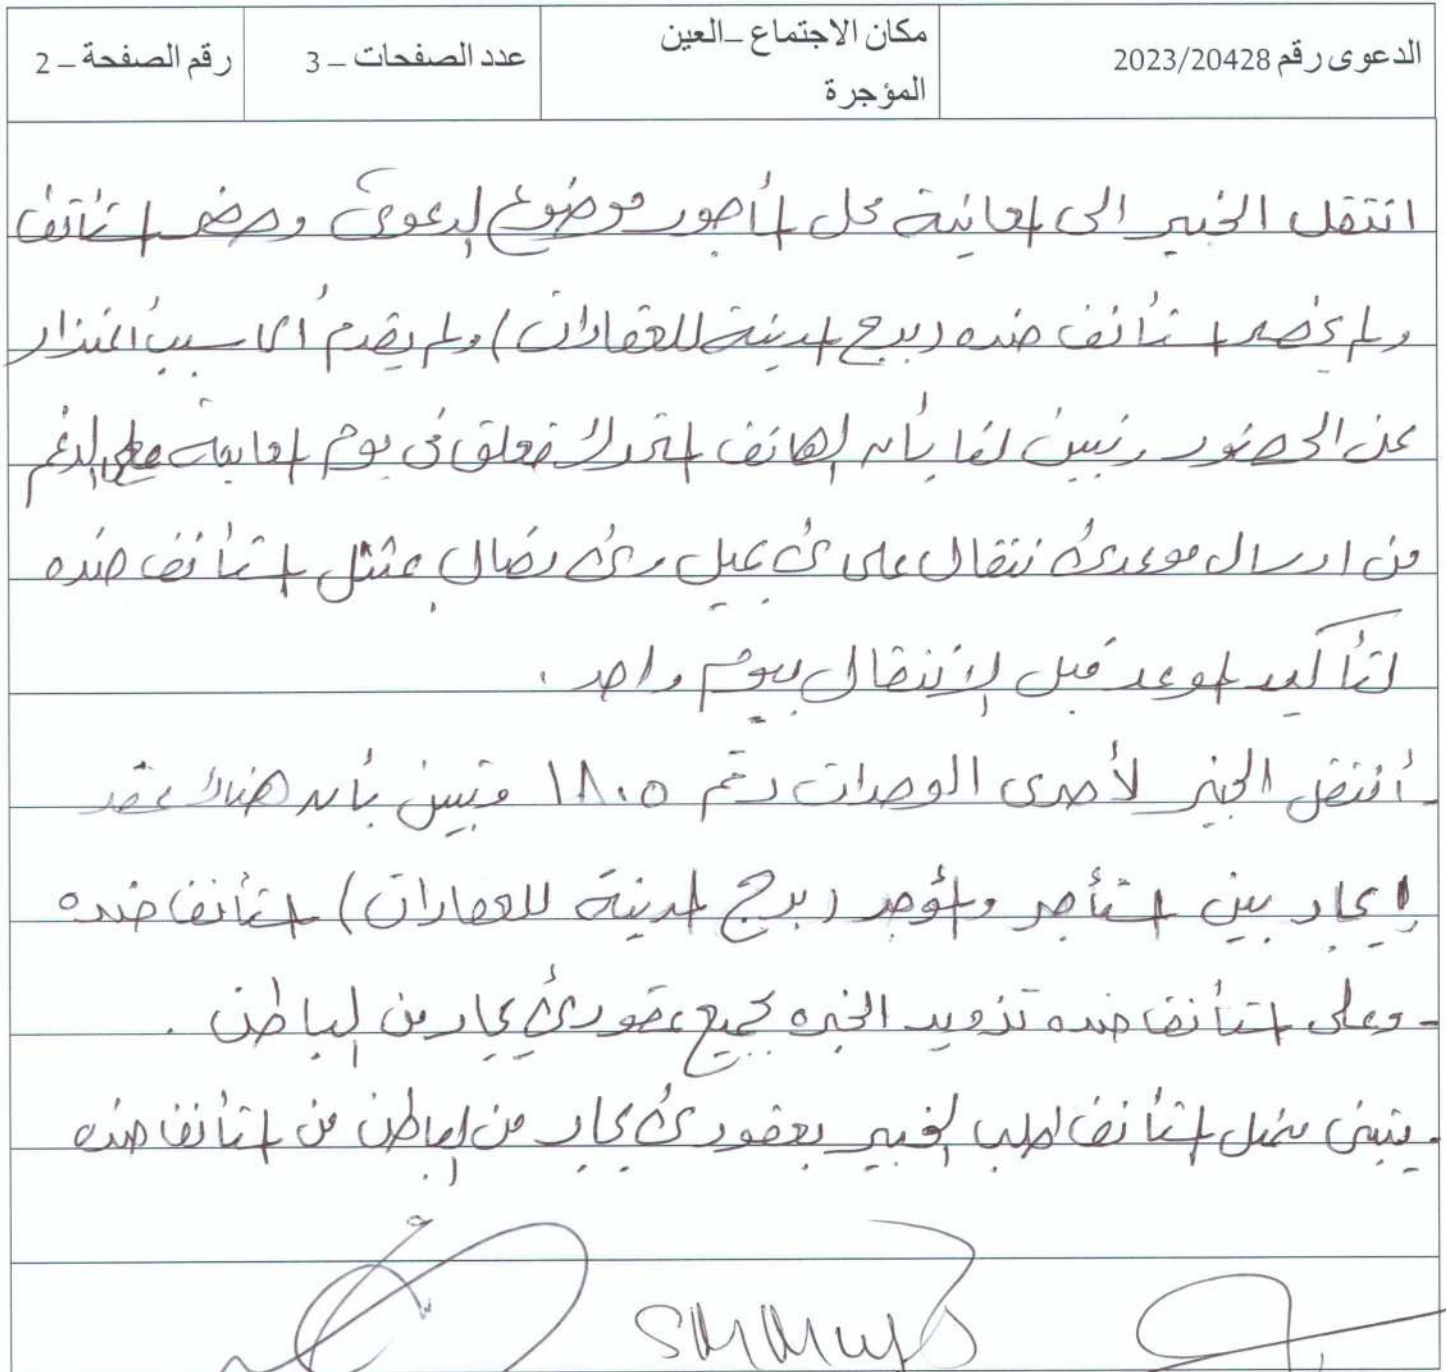 الدعوى رقم 2023/20428
مكان الاجتماع – العين المؤجرة
عدد الصفحات – 3
رقم الصفحة – 2
انتقل الخبير الى المعاينة محل المأجور موضوع الدعوى وحضر المستأنف
ولم يحضر المستأنف ضده (برج المدينة للعقارات) ولم يقدم أي سبب اعتذار
عن الحضور وتبين لنا بأن الهاتف المتحرك مغلق في يوم المعاينة على الرغم
من ارسال موعد الانتقال على الايميل والاتصال بممثل المستأنف ضده
لتأكيد الموعد قبل الانتقال بيوم واحد .
- أنتقل الخبير لأحدى الوحدات رقم ١٨٠٥ وتبين بأن هناك عقد
إيجار بين المستأجر والمؤجر (برج المدينة للعقارات) المستأنف ضده
- وعلى المستأنف ضده تزويد الخبره بجميع عقود الإيجار من الباطن .
- يتبنى ممثل المستأنف طلب الخبير بعقود الايجار من الباطن من المستأنف ضده